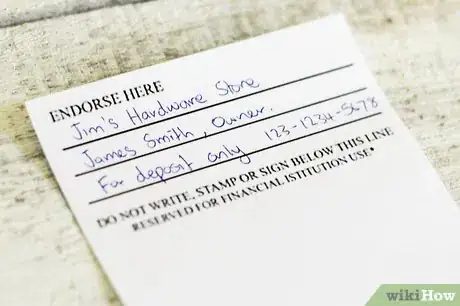 ENDORSE HERE
Jim's Hardware Store
James Smith, Owner.
For deposit only 123-1234-5678
DO NOT WRITE, STAMP OR SIGN BELOW THIS LINE
RESERVED FOR FINANCIAL ISTITUTION USE*
wikiHow